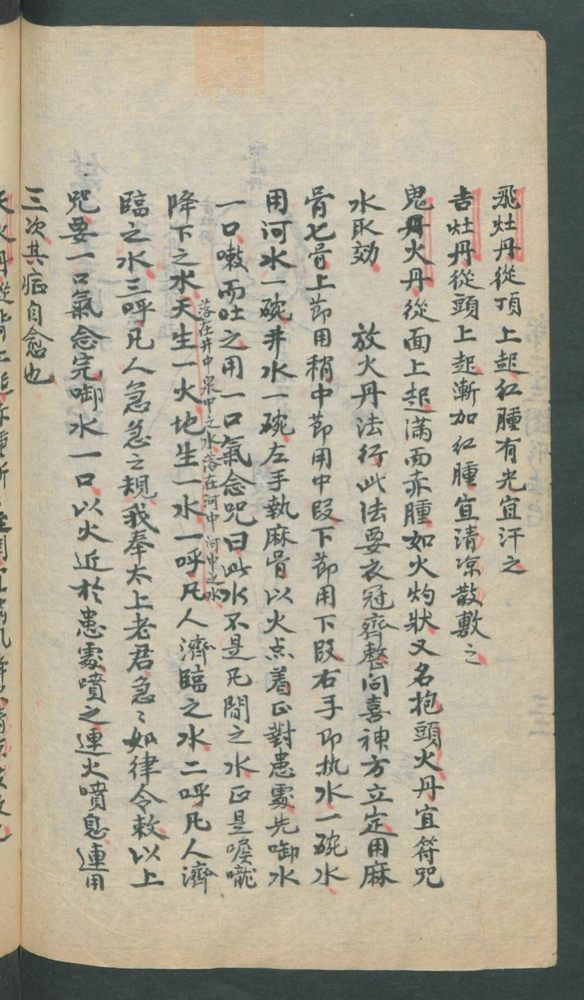 飛灶丹從頂上起紅腫有光宜汗之
吉灶丹從頭上起漸加紅腫宜清凉散敷之
鬼丹火丹從面上起滿面赤腫如火灼狀又名抱頭火丹宜符咒
水取効　放火丹法行此法要衣冠齊整向喜神方立定用麻
骨七骨上節用稍中節用中段下節用下段右手即执水一碗水
用河水一碗井水一碗左手執麻骨以火点着正對患處先啣水
一口嗽而吐之用一口氣念咒曰此水不是凡間之水正是喉嚨
降下之水天生一火地生一水一呼凡人濟臨之水二呼凡人濟
落在井中泉中之水落在河中河中之水
臨之水三呼凡人急急之規我奉太上老君急〻如律令敕以上
咒要一口氣念完啣水一口以火近於患處噴之連火噴息連用
三次其症自愈也